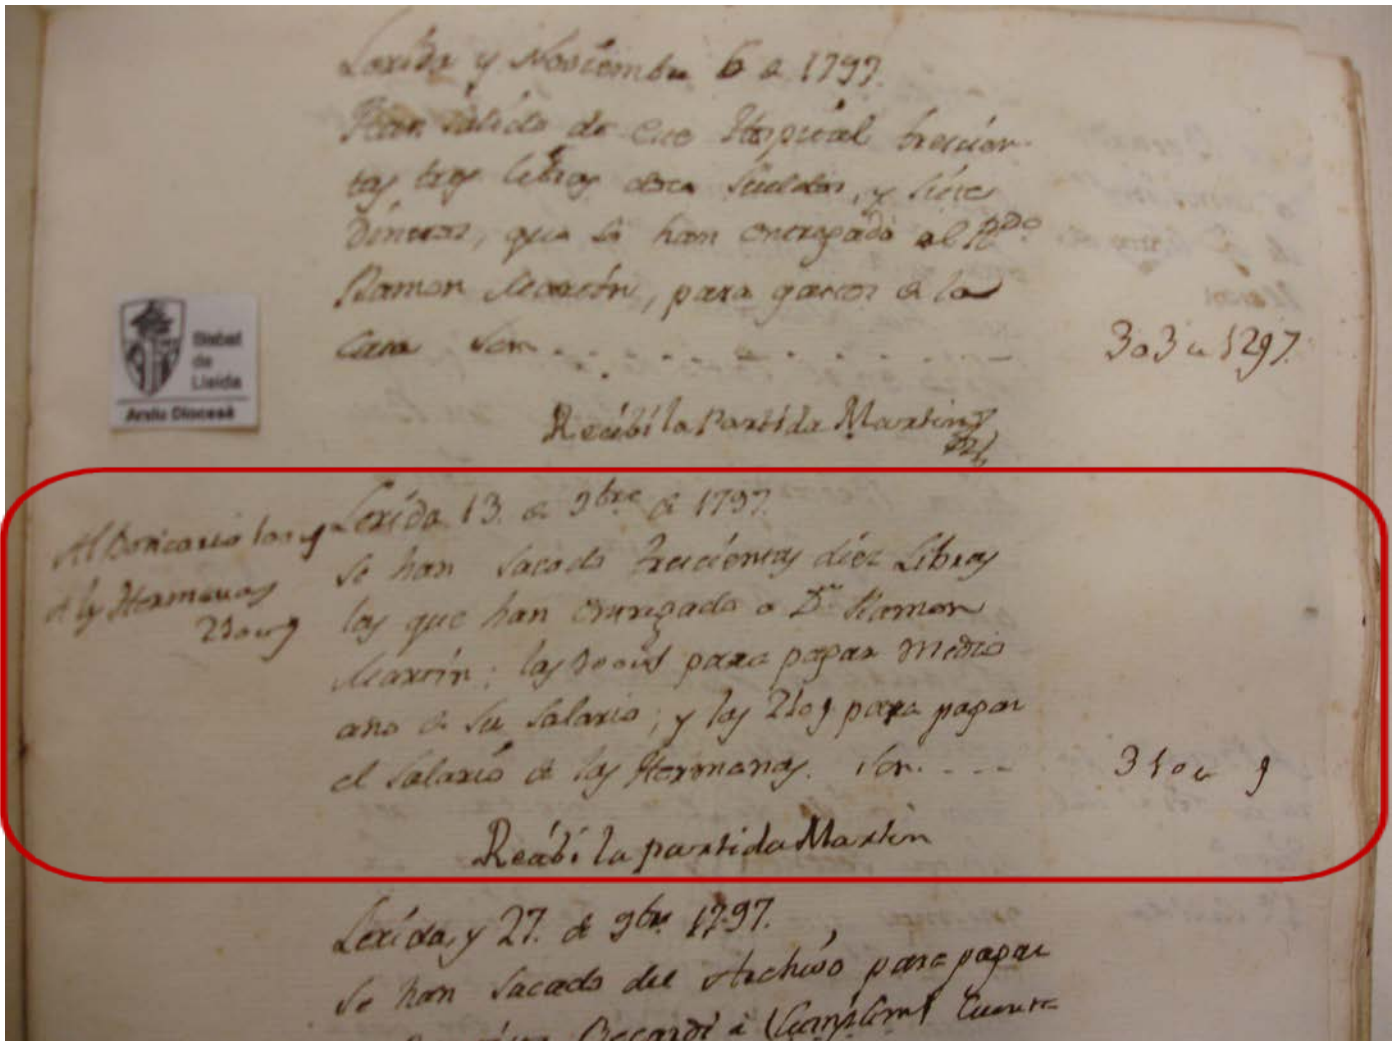 Lerida y Noviembre 6 de 1797.
Han salido de este Hospital trecien-
tas tres Libras doce sueldos, y siete
Dineros, que se han entregado al Rdo
Ramon Martin, para gastos de la
Casa son
303 u 1297.
Recibí la Partida Martin
Bisbat
de
Lleida
Arxiu Diocesà
Lerida 13. de 9bre de 1797.
Al Boticario 100 9
A las Hermanas
210 u 9
se han sacado trecientas diez Libras
las que han entregado a Dn Ramon
Martin; las para pagar medio
año de su salario; y las 210 9 para pagar
el salario de las Hermanas. son.
310 u 9
Recibí la partida Martin
Lerida, y 27. de 9bre 1797.
Se han sacado del Archivo para pagar
a Cumplimt Cuenta